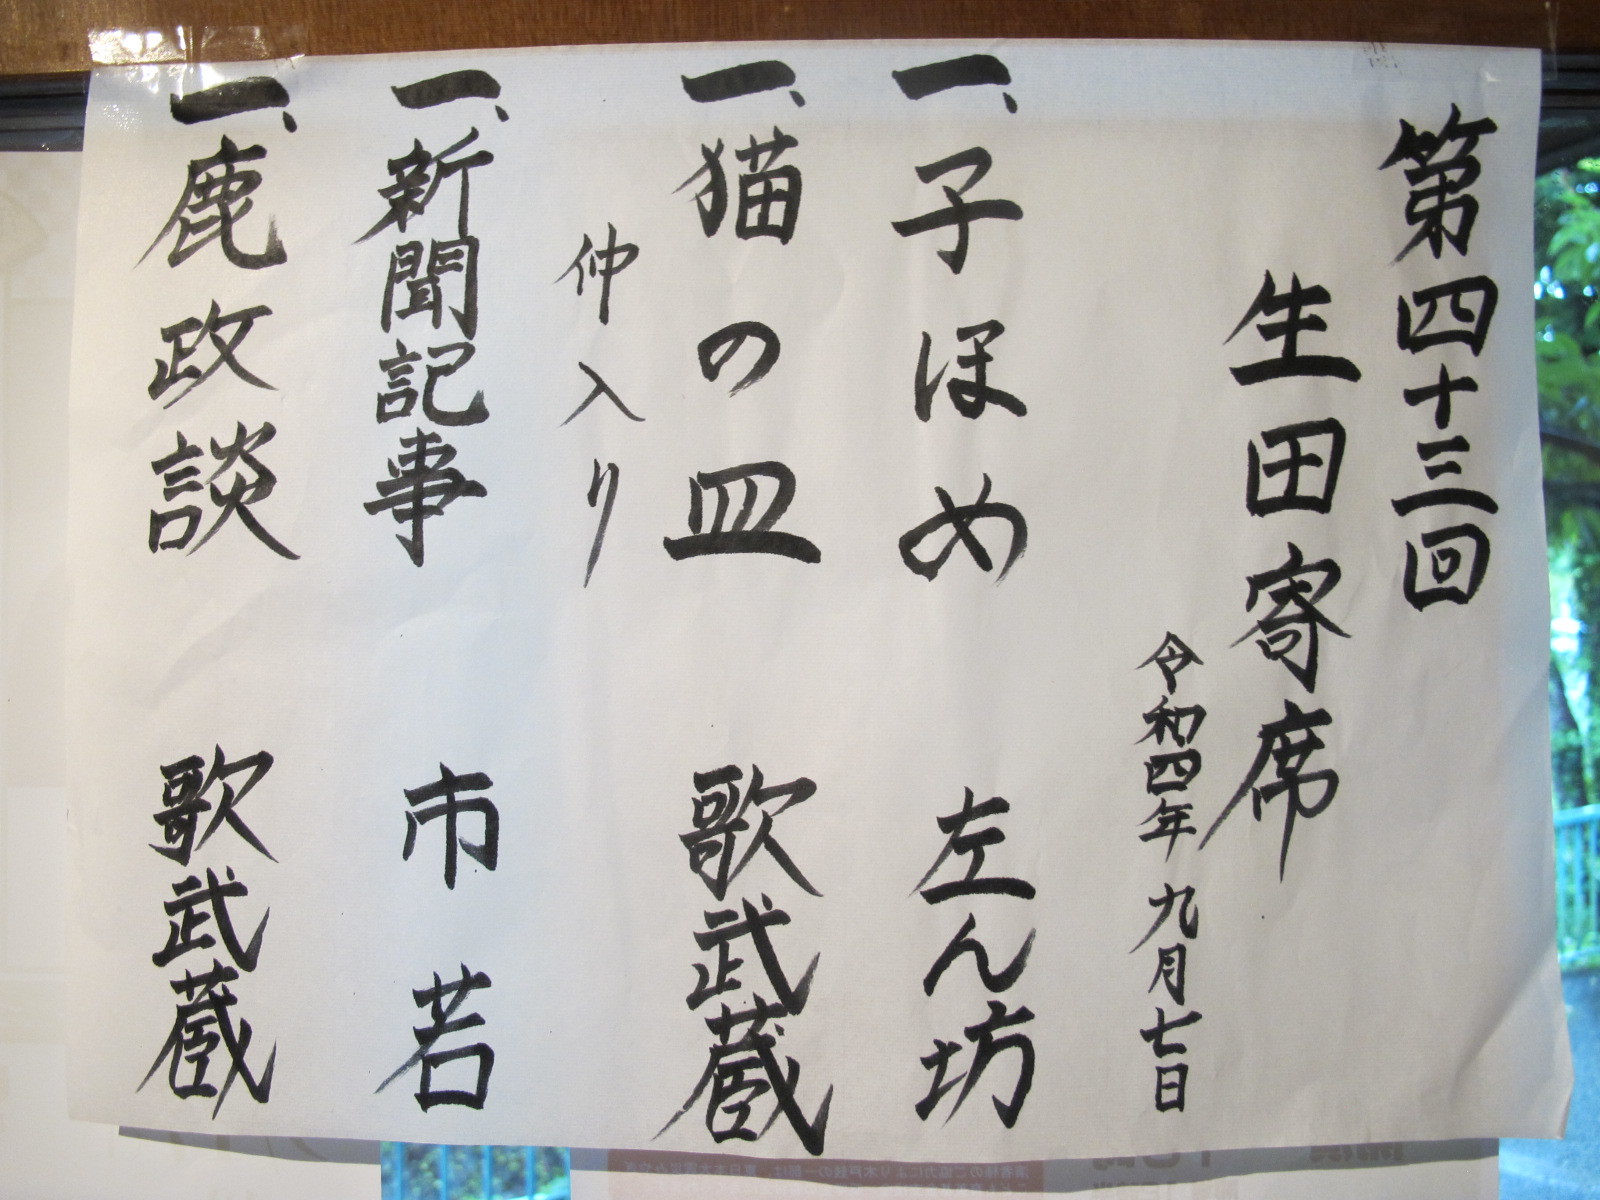 第四十三回
生田寄席
令和四年九月七日
一、子ほめ 左ん坊
一、猫の皿 歌武蔵
仲入り
一、新聞記事 市若
一、鹿政談 歌武蔵